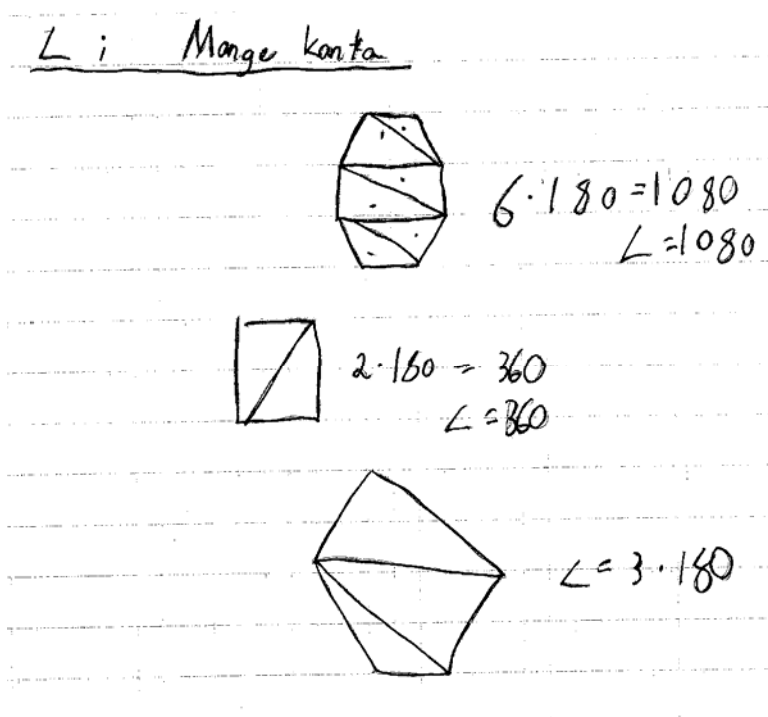 ∠ i Mange kanta
6·180=1080
∠=1080
2·180 = 360
∠=360
∠=3·180